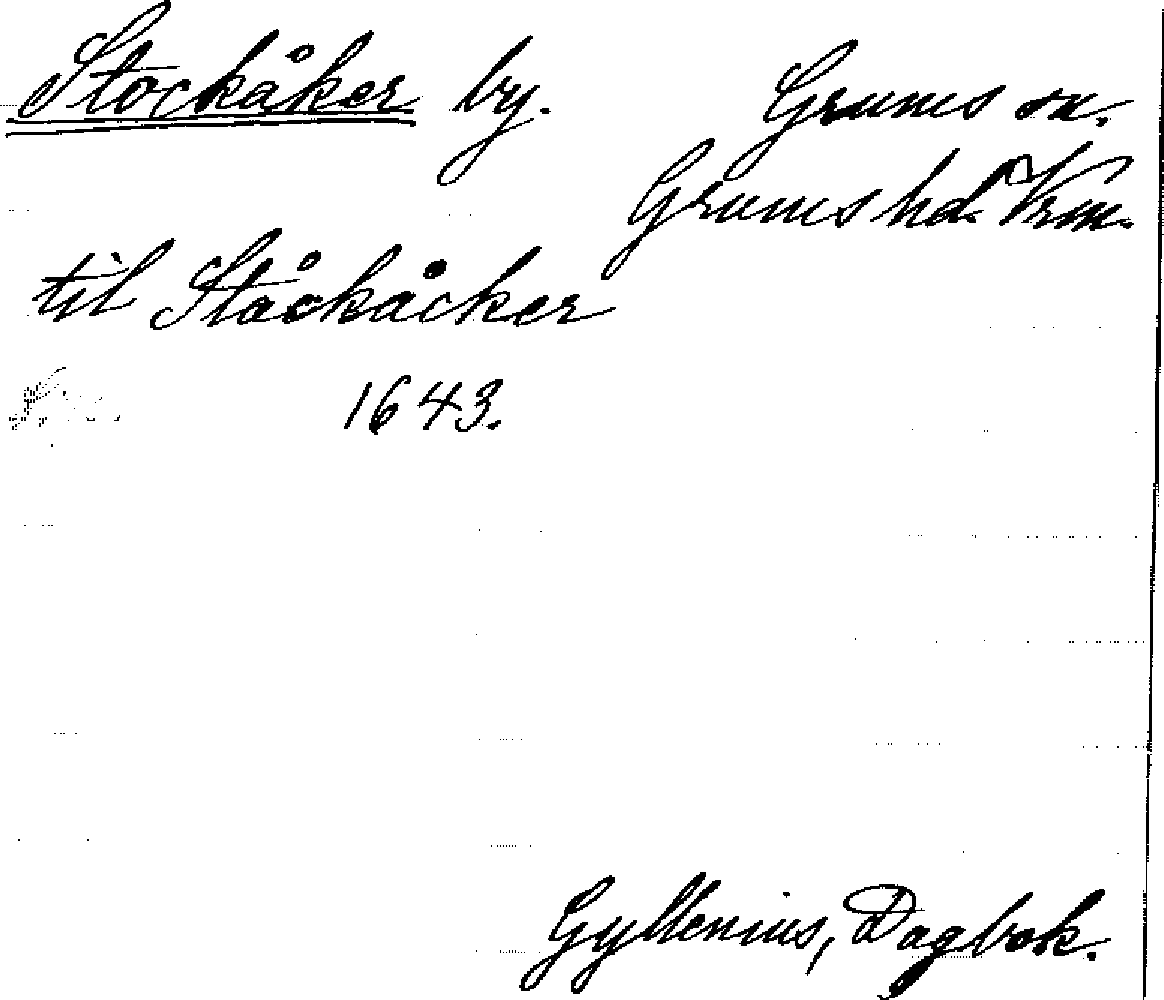 Stockåker by.
Grums sn.
Grums hd. Vrm.
til Ståckåcker
1643.
Gyllenius, Dagbok.